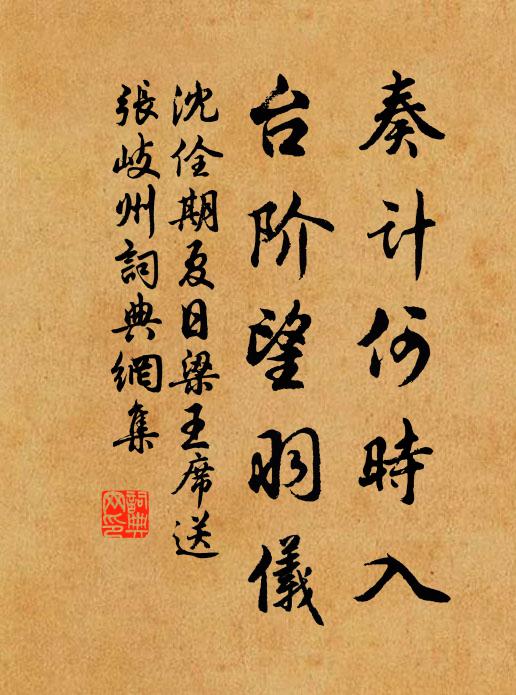 奏计何時入
台阶望羽儀
沈佺期夏日梁王席送
張岐州詞典網集
詞典
网印